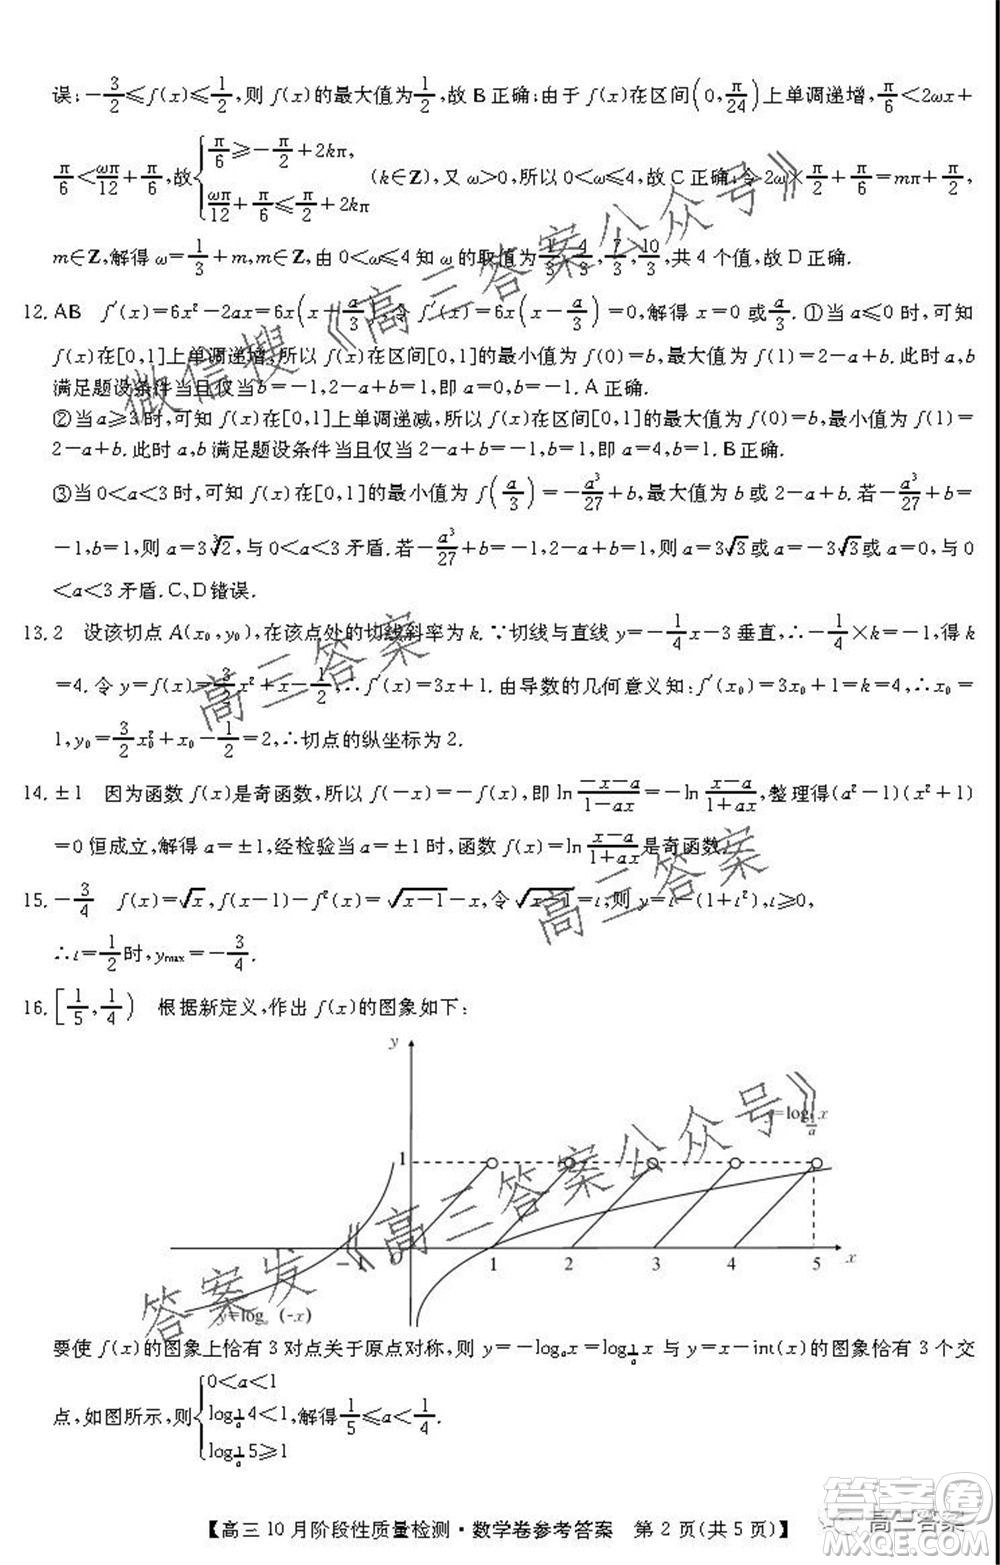 误;-3/2≤f(x)≤1/2,则 f(x)的最大值为1/2,故 B 正确;由于 f(x)在区间(0,π/24)上单调递增,π/6<2ωx+
π/6<ωπ/12+π/6,故{π/6≥-π/2+2kπ, ωπ/12+π/6≤π/2+2kπ (k∈Z),又 ω>0,所以 0<ω≤4,故 C 正确;令 2ω×π/2+π/6=mπ+π/2,
m∈Z,解得 ω=1/3+m,由 0<ω≤4 知 ω 的取值为1/3,4/3,7/3,10/3,共 4 个值,故 D 正确.
12. AB f′(x)=6x²-2ax=6x(x-a/3),令 f′(x)=6x(x-a/3)=0,解得 x=0 或a/3.①当 a≤0 时,可知
f(x)在[0,1]上单调递增,所以 f(x)在区间[0,1]的最小值为 f(0)=b,最大值为 f(1)=2-a+b.此时 a,b
满足题设条件当且仅当 b=-1,2-a+b=1,即 a=0,b=-1.A 正确.
②当 a≥3 时,可知 f(x)在[0,1]上单调递减,所以 f(x)在区间[0,1]的最大值为 f(0)=b,最小值为 f(1)=
2-a+b.此时 a,b 满足题设条件当且仅当 2-a+b=-1,b=1,即 a=4,b=1.B 正确.
③当 0<a<3 时,可知 f(x)在[0,1]的最小值为 f(a/3)=-a³/27+b,最大值为 b 或 2-a+b.若-a³/27+b=
-1,b=1,则 a=3∛2,与 0<a<3 矛盾.若-a³/27+b=-1,2-a+b=1,则 a=3√3或 a=-3√3或 a=0,与 0
<a<3 矛盾.C、D 错误.
13. 2 设该切点 A(x₀,y₀),在该点处的切线斜率为 k.∵切线与直线 y=-1/4x-3 垂直,∴-1/4×k=-1,得 k
=4.令 y=f(x)=3/2x²+x-1/2,∴f′(x)=3x+1.由导数的几何意义知:f′(x₀)=3x₀+1=k=4,∴x₀=
1,y₀=3/2x₀²+x₀-1/2=2,∴切点的纵坐标为 2.
14. ±1 因为函数 f(x)是奇函数,所以 f(-x)=-f(x),即 ln(-x-a)/(1-ax)=-ln(x-a)/(1+ax),整理得(a²-1)(x²+1)
=0 恒成立,解得 a=±1,经检验当 a=±1 时,函数 f(x)=ln(x-a)/(1+ax)是奇函数.
15. -3/4 f(x)=√x,f(x-1)-f²(x)=√(x-1)-x,令√(x-1)=t,则 y=t-(1+t²),t≥0,
∴t=1/2时,y_max=-3/4.
16. [1/5,1/4) 根据新定义,作出 f(x)的图象如下:
y
y=log_{1/a} x
1
-1 O 1 2 3 4 5 x
y=log_a(-x)
要使 f(x)的图象上恰有 3 对点关于原点对称,则 y=-log_a x=log_{1/a} x 与 y=x-int(x)的图象恰有 3 个交
点,如图所示,则{0<a<1 log_{1/a} 4<1 log_{1/a} 5≥1,解得1/5≤a<1/4.
【高三 10 月阶段性质量检测·数学卷参考答案 第 2 页(共 5 页)】
微信搜《高三答案公众号》
高三答案
高三答案
答案发《高三答案公众号》
答案圈
高三答案
MXQE.COM